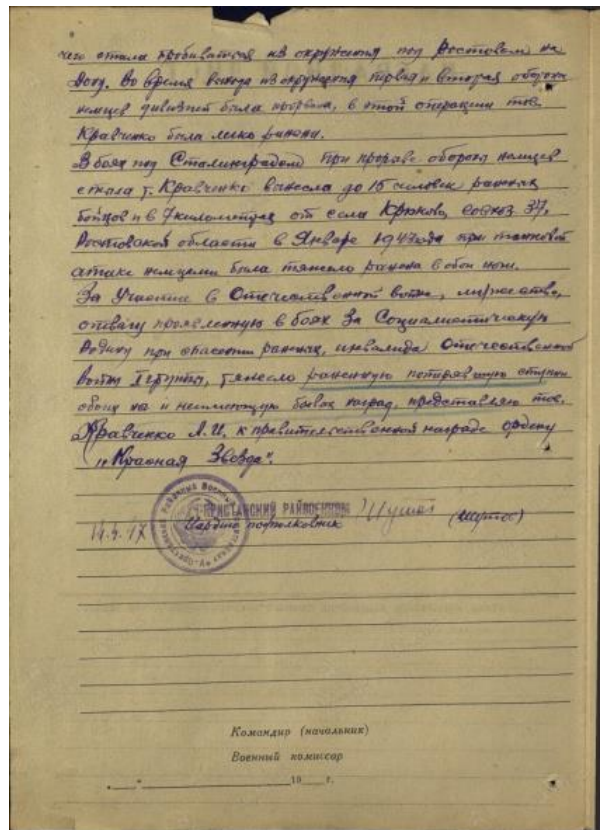 чего стала пробиваться из окружения под Ростовом на
Дону. Во время выхода из окружения первая и вторая оборона
немцев дивизией была прорвана, в этой операции тов.
Кравченко была легко ранена.
В боях под Сталинградом при прорыве обороны немцев
т. Кравченко вынесла до 15 человек раненых
бойцов и в 7 километрах от села Крюково, совхоз 37,
Ростовской области в Январе 1943 года при танковой
атаке немцами была тяжело ранена в обои ноги.
За Участие в Отечественной войне, мужество,
отвагу проявленную в боях За Социалистическую
Родину при спасении раненых, инвалида Отечественной
войны I группы, тяжело раненную потерявшую ступни
обоих ног и неимеющую боевых наград, представляю тов.
Кравченко Л.И. к правительственной награде ордену
"Красная Звезда".
РАЙВОЕНКОМ
Гвардии подполковник
14.4.47
Командир (начальник)
Военный комиссар
"___"___________19___ г.